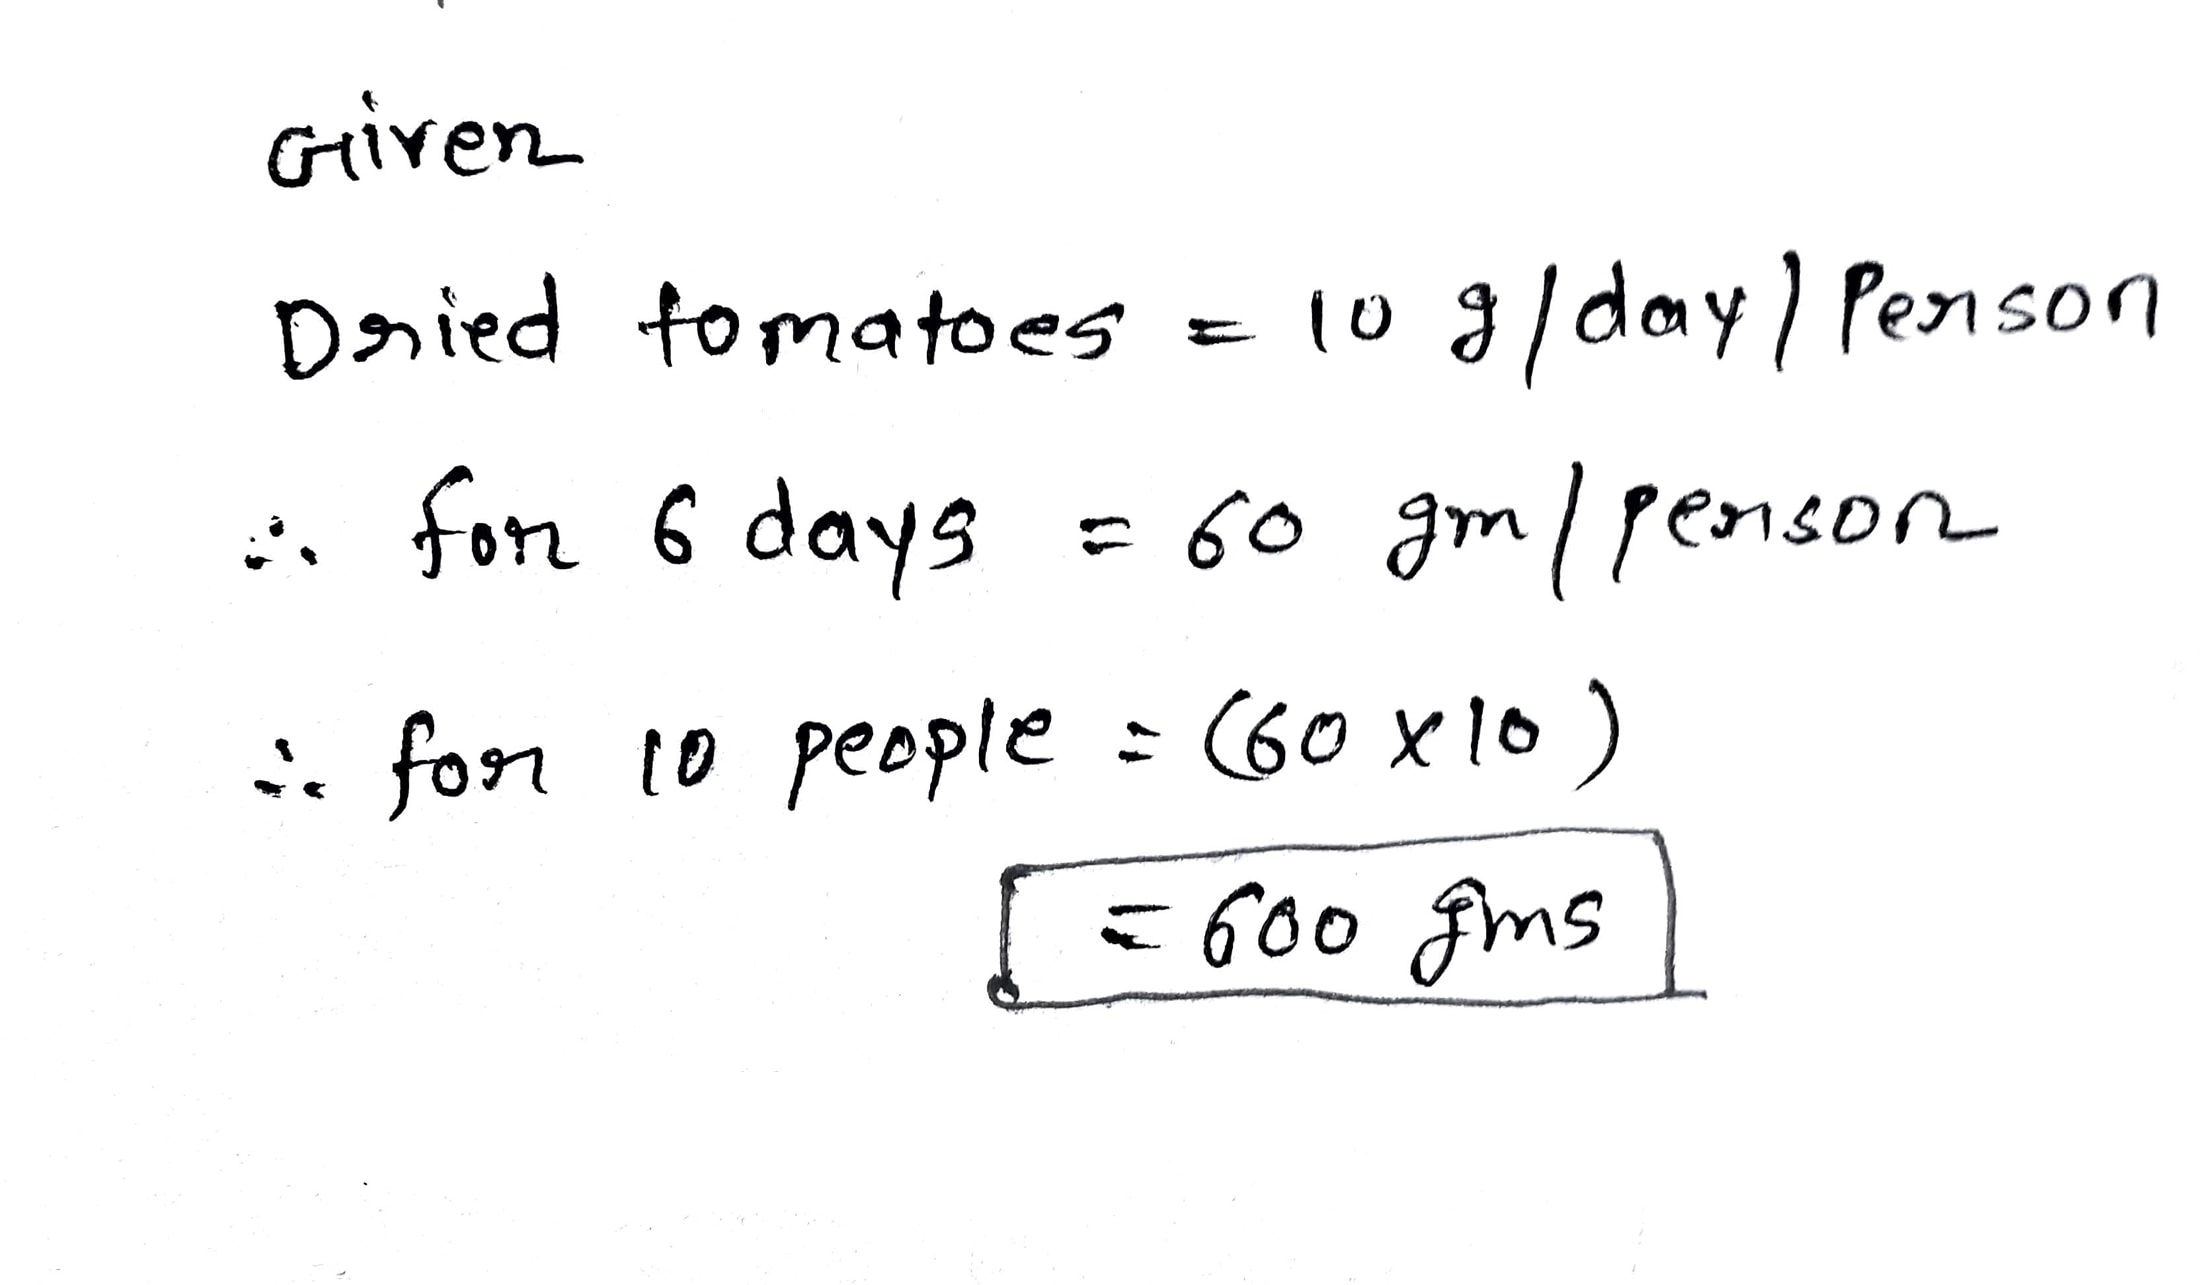 Given
Dried tomatoes = 10 g/day/Person
∴ for 6 days = 60 gm/person
∴ for 10 people = (60 x 10)
= 600 gms